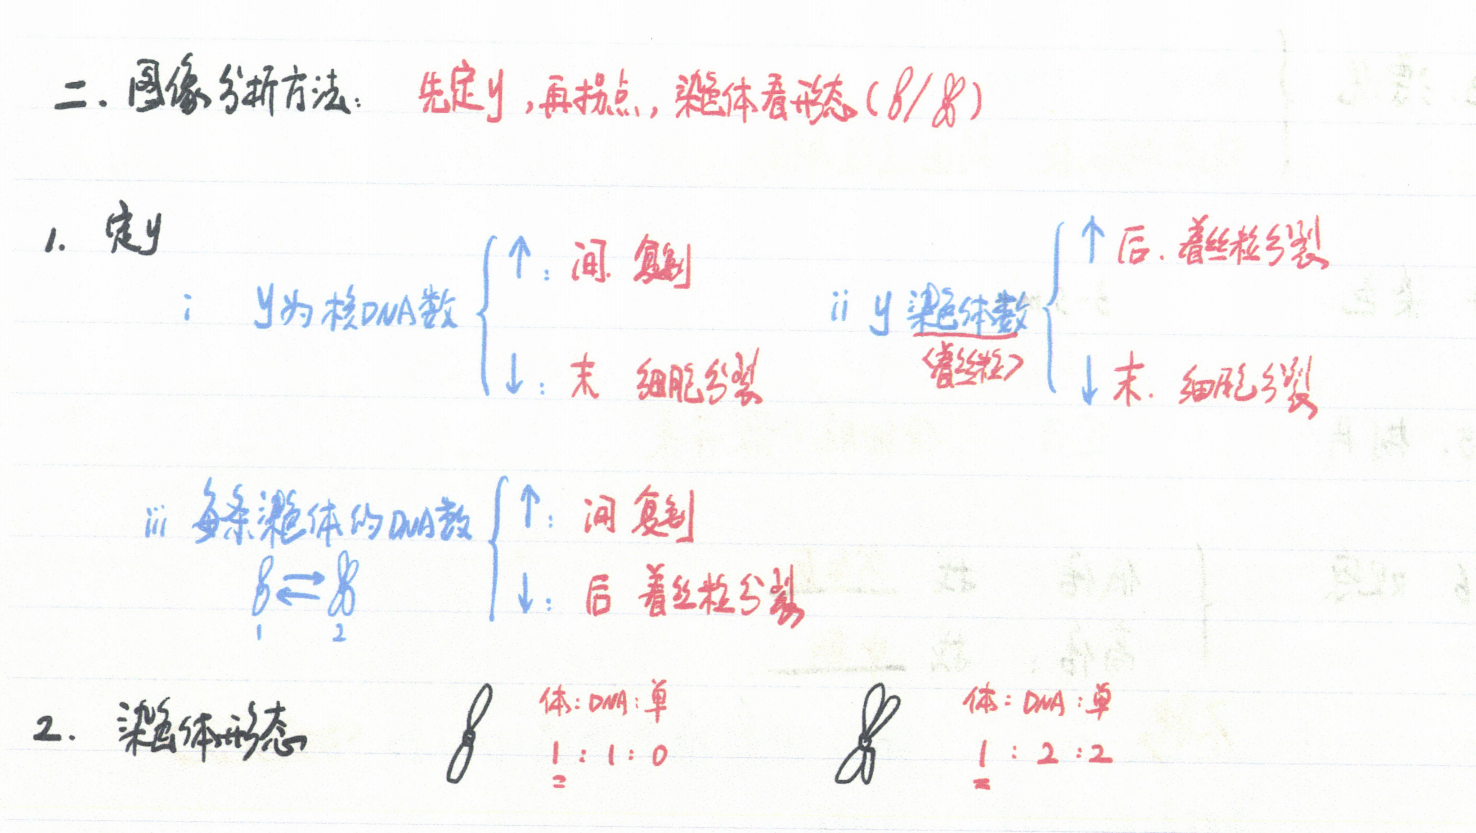 二. 图像分析方法: 先定y,再拐点,染色体看形态( / )
1. 定y
i y为核DNA数
↑: 间. 复制
↓: 末 细胞分裂
ii y 染色体数
(着丝粒)
↑ 后. 着丝粒分裂
↓ 末. 细胞分裂
iii 每条染色体的DNA数
1 2
↑: 间 复制
↓: 后 着丝粒分裂
2. 染色体形态
体:DNA:单
1:1:0
体:DNA:单
1:2:2